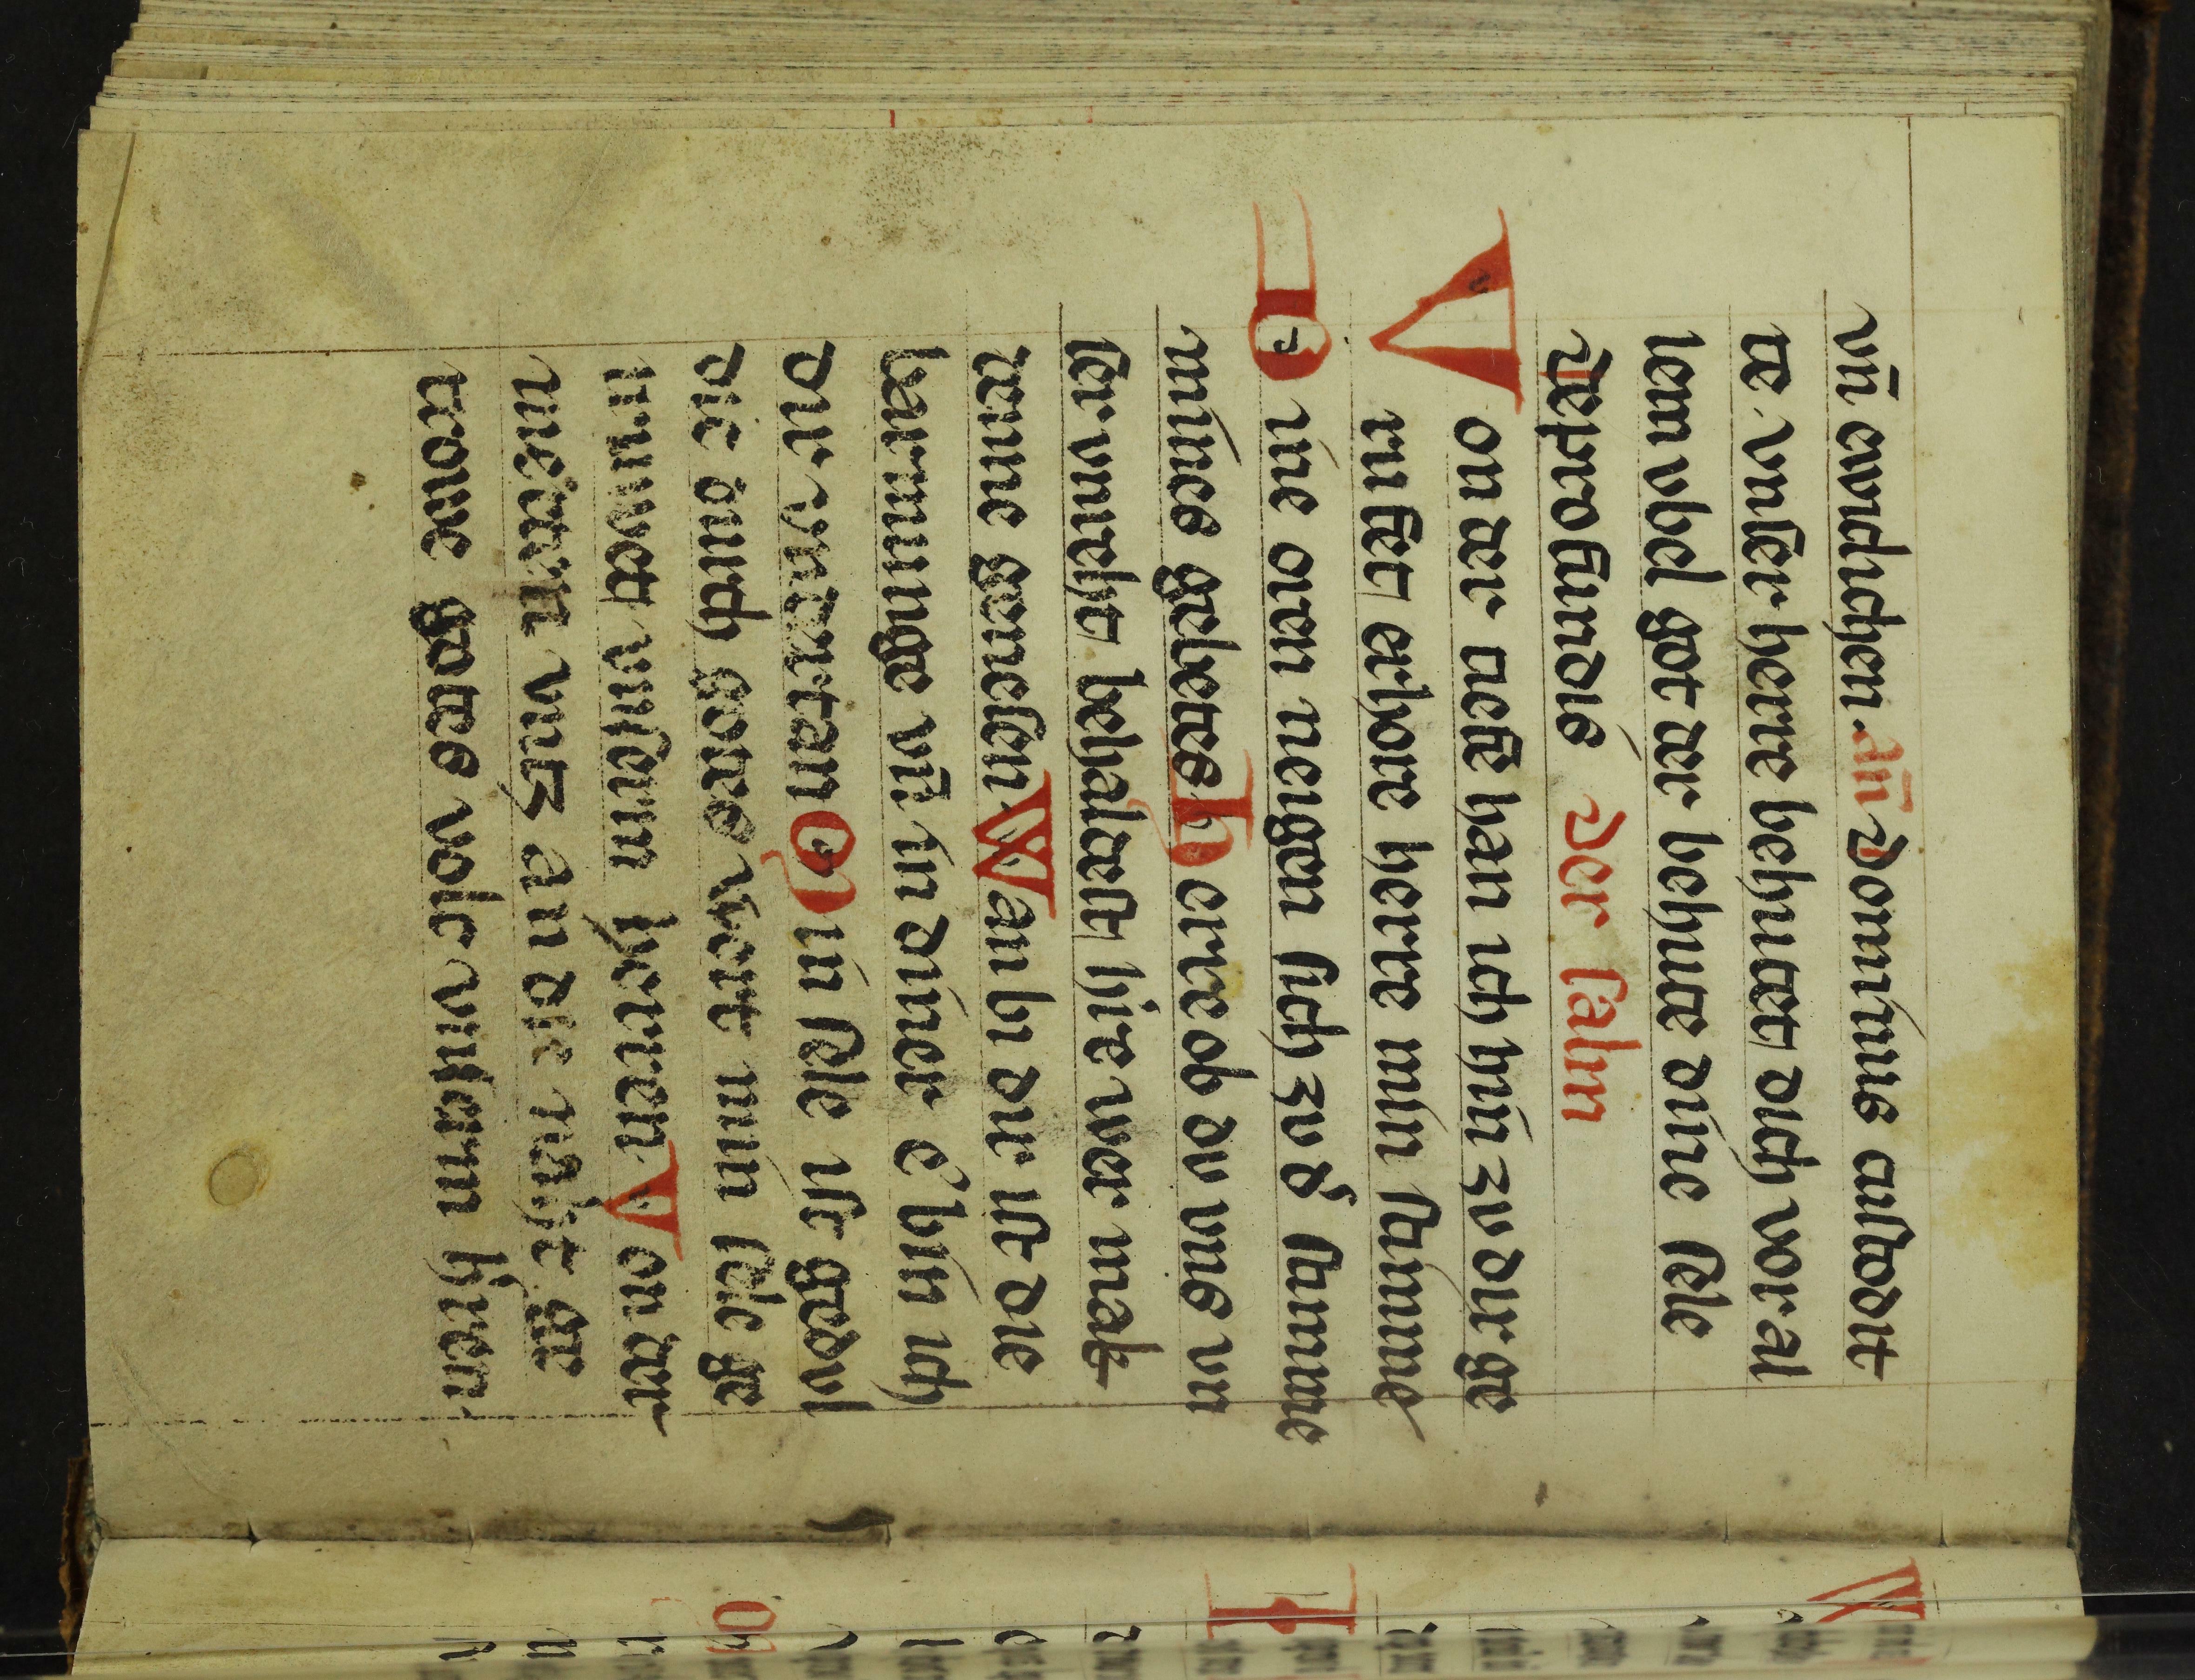 vn̄ ewichchen. an̄ Dominus custodit
te vnser herre behuttet dich vor al
lem vbel got der behute dine sele
De profundis der salm
Von der tieffe han ich hin zv dir ge
rufet erhore herre min stimme
Dine oren neigen sich zv d' stimme
mines gebetes Herre ob dv vns vn
ser vnreht behaltest hirre wer mak
denne genesen Wan bi dir ist die
barmunge vn̄ in diner e bin ich
dir vndertan Min sele ist gedvl
dic durch gotes wort min sele ge
truwet minem herren Von der
metten vntz an die naht ge
trowe gotes volc vnserm herren